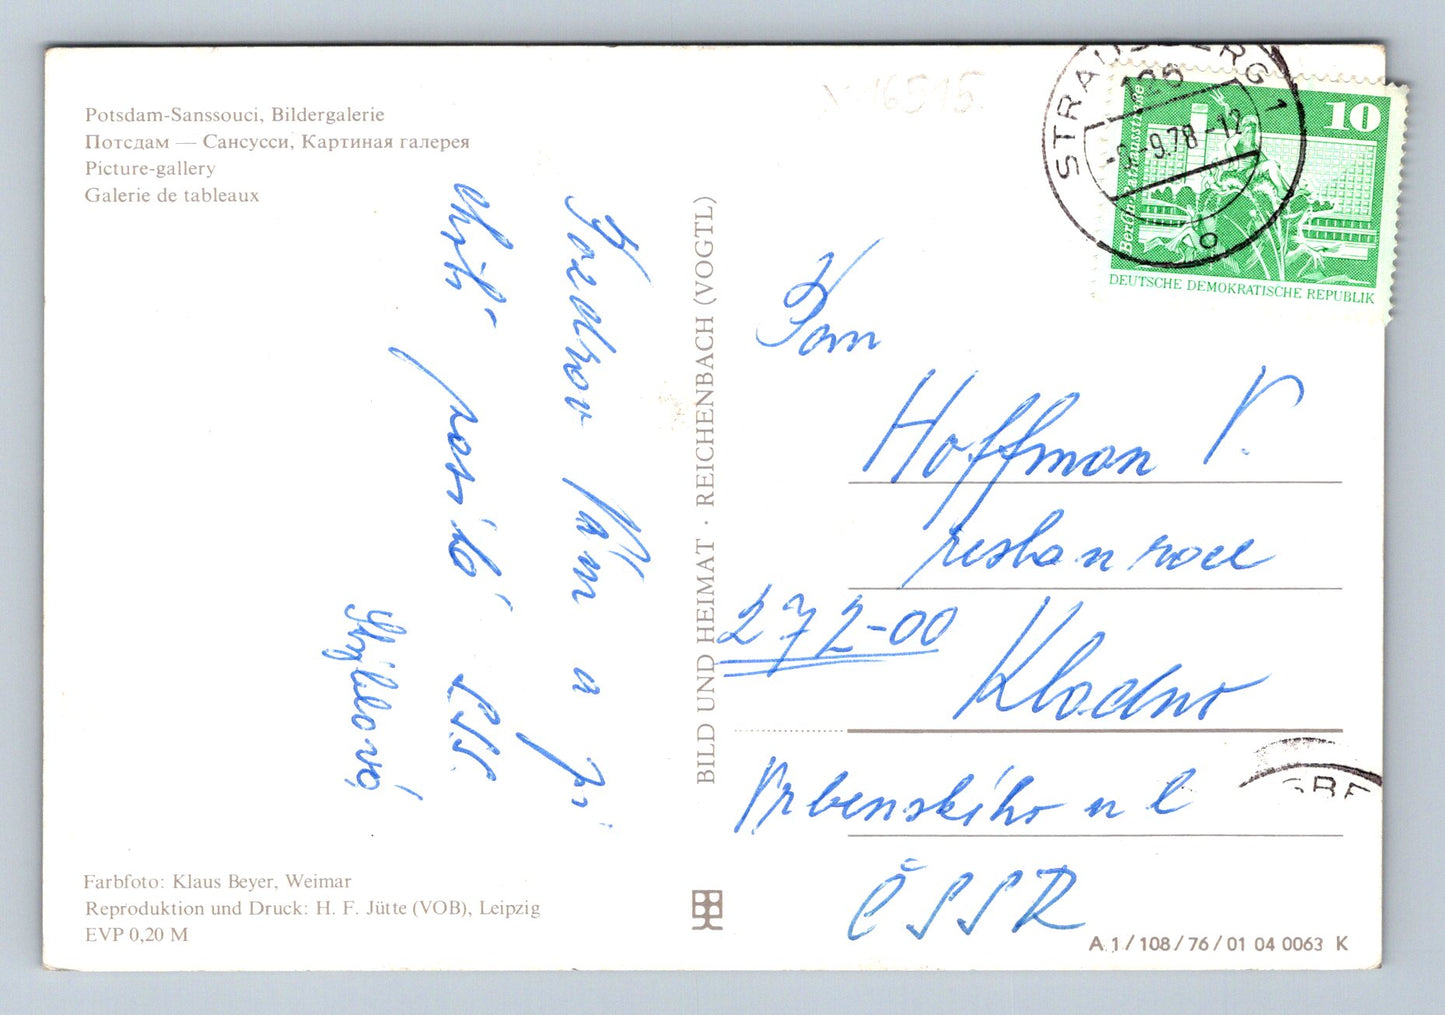 Potsdam-Sanssouci, Bildergalerie
Потсдам — Сансусси, Картиная галерея
Picture-gallery
Galerie de tableaux
Pozdrav Vám a
posílá
Farbfoto: Klaus Beyer, Weimar
Reproduktion und Druck: H. F. Jütte (VOB), Leipzig
EVP 0,20 M
BILD UND HEIMAT · REICHENBACH (VOGTL)
STRAUSBERG 1
-9.78-12
b
10
Berlin, Rathausstraße
DEUTSCHE DEMOKRATISCHE REPUBLIK
Pan
Hoffman V.
restaurace
272-00
Kladno
Vrbenského ul
ČSSR
A 1/108/76/01 04 0063 K